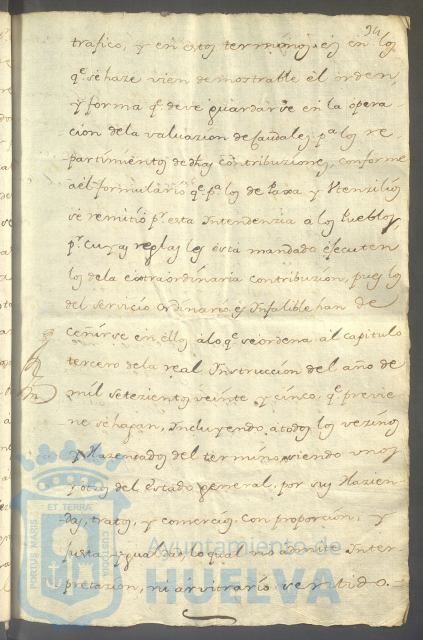 24
trafico, y en estos terminos es en los
qe. se haze vien demostrable el orden,
y forma qe. deve guardarse en la opera-
cion dela valuazion de Caudales pa. los re-
partimientos de dhas Contribuziones, conforme
ael formulario qe. pa. los de Paxa y Utenzilios
se remitió pr. esta Intendenzia a los Pueblos,
pr. cuyas reglas les está mandado ejecuten
los dela extraordinaria Contribuzion, pues los
del servicio ordinario es Infalible han de
ceñirse en ellos alo qe. se ordena al Capitulo
tercero dela real Instruccion del año de
mil setezientos veinte y cinco, qe. previe-
ne se hagan, Incluyendo atodos los vezinos
y Hazendados del termino, siendo unos
y otros del estado general, por sus Hazien-
das, tratos, y comercios, Con proporcion, y
justa ygualdad, lo qual no admite Inter-
pretazion, ni arvitrario sentido.
PORTUS MARIS ET TERRÆ
Ayuntamiento de
HUELVA